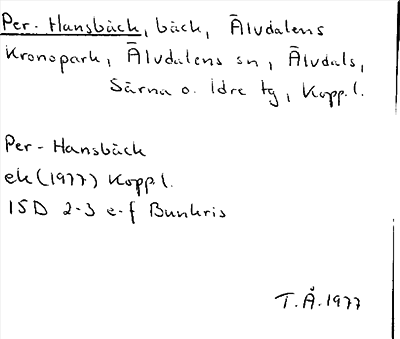 Per-Hansbäck, bäck, Älvdalens
Kronopark, Älvdalens sn, Älvdals,
Särna o. Idre tg, Kopp.l.
Per-Hansbäck
ek (1977) Kopp l.
15D 2-3 e-f Bunkris
T.Å.1977